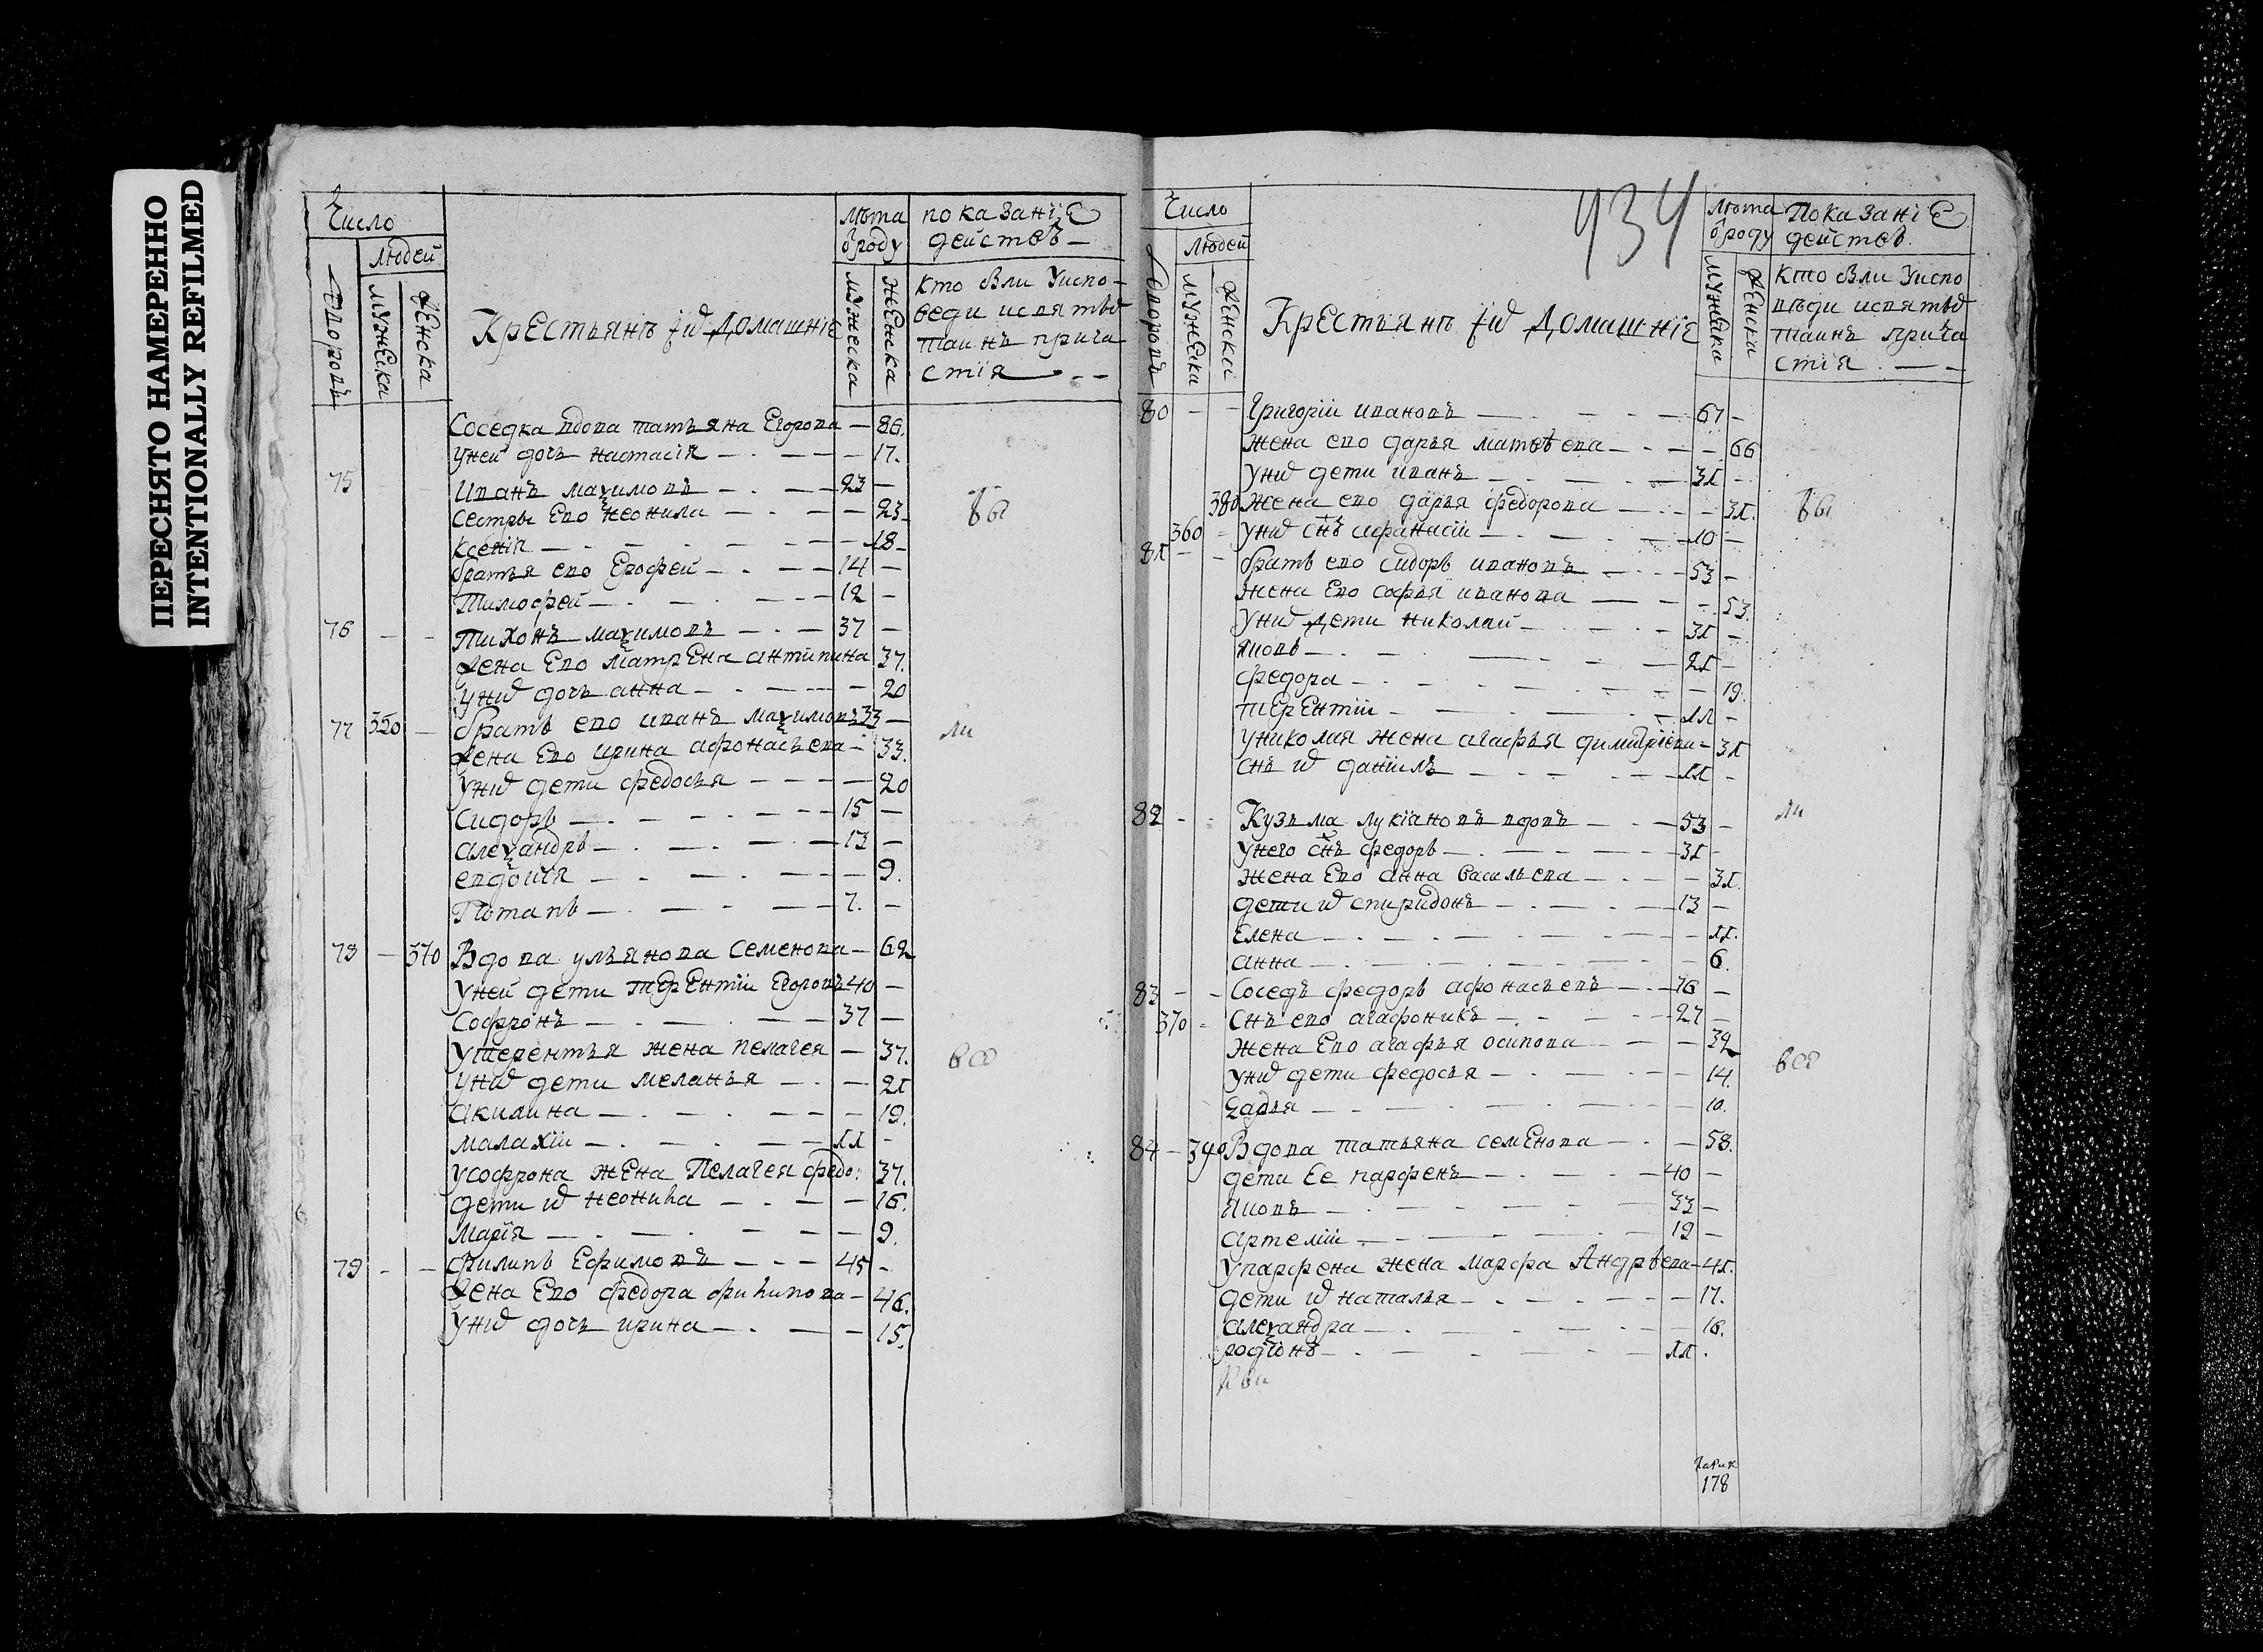 ПЕРЕСНЯТО НАМЕРЕННО
INTENTIONALLY REFILMED
Число
Людей
дворовъ
мужеска
женска
Крестьянъ и ихъ Домашнiе
лѣта
ѿ роду
мужеска
женска
показанiе
действъ —
кто были у испо-
веди и святыхъ
таинъ прича
стiя — —
Соседка вдова татьяна Егорова — 86.
у ней дочь настасiя — 17.
75 Иванъ маѯимовъ — 23 —
сестры Ево неонила — 23
ксенiя — 18
братья ево Ерофей — 14 —
Тимофей — 12 —
бы
76 — — Тихонъ маѯимовъ — 37 —
жена Ево матрена антипина 37.
у них дочь анна — 20
77 350 — братъ ево иванъ маѯимовъ 33 —
жена Ево ирина афонасьева — 33.
у них дети федосья — 20
ли
сидоръ — 15 —
Алеѯандръ — 13 —
евдокiя — 9.
Потапъ — 7. —
78 — 370 Вдова ульянова Семенова — 62
у ней дети терентiи Егоровъ 40 —
Софронъ — 37 —
у терентья жена пелагея — 37.
у них дети меланья — 21
Акилина — 19.
малахiи — 11 —
все
у софрона жена Пелагея федо: 37.
дети их неонила — 16.
марiя — 9.
79 — — филипъ Ефимовъ — 45 —
жена Ево федора филипова — 46.
у них дочь ирина — 15.
934
Число
Людей
дворовъ
мужеска
женска
Крестьянъ и ихъ Домашнiе
лѣта
ѿ роду
мужеска
женска
Показанiе
действъ.
кто были у испо
вѣди и святыхъ
таинъ прича
стiя . — —
80 — — Григорiи ивановъ — 67 —
жена ево дарья матвѣева — 66
у них дети иванъ — 31 —
380 жена ево дарья федорова — 31.
360 — у них снъ афанасiи — 10 —
81 — — братъ ево сидоръ ивановъ — 53 —
бы
жена Ево софья иванова — 53.
у них дети николаи — 31 —
Яковъ — 21 —
федора — 19.
терентiи — 11 —
у николая жена агафья димитрiева — 31
снъ их данiилъ — 11 —
82 — — Кузьма лукiановъ вдовъ — 53 —
ли
у него снъ федоръ — 31 —
жена Ево анна васильева — 31.
дети их спиридонъ — 13 —
Елена — 11.
анна — 6.
83 — — Соседъ федоръ афонасьевъ — 76 —
370 — Снъ ево агафоникъ — 27 —
жена Ево агафья осипова — 32
все
у них дети федосья — 14.
дарья — 10.
84 — 390 Вдова татьяна семенова — 58.
дети Ее парфенъ — 40 —
Яковъ — 33 —
артемiи — 12 —
у парфена жена марфа Андрѣева — 41.
дети их наталья — 17.
алеѯандра — 16.
родiонъ — 11 .
178